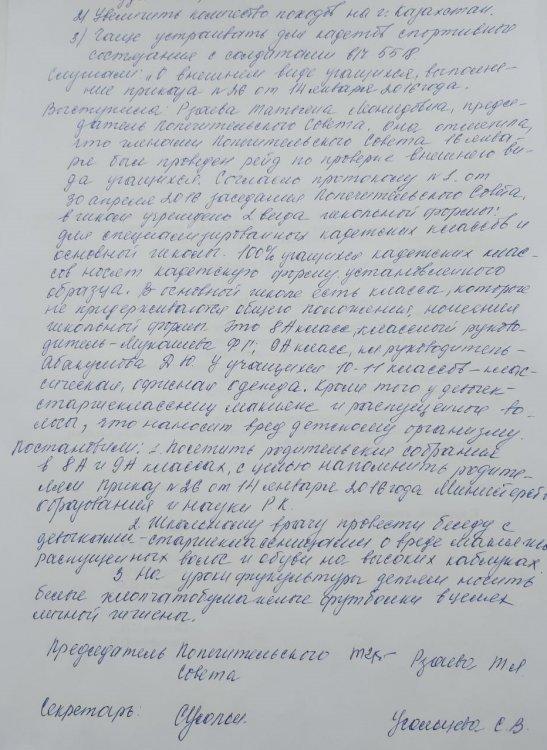 2) Увеличить количество походов на г. Казахстан.
3) Чаще устраивать для кадетов спортивное
состязание с солдатами в/ч 5518
Слушали: „О внешнем виде учащихся, выполне-
ние приказа №26 от 14 января 2016 года.
Выступила: Рзаева Татьяна Леонидовна, предсе-
датель Попечительского Совета. Она отметила,
что членами Попечительского Совета 16 янва-
ря был проведен рейд по проверке внешнего ви-
да учащихся. Согласно протоколу №1. от
30 апреля 2018 заседания Попечительского Совета,
в школе учреждено 2 вида школьной формы:
для специализированных кадетских классов и
основной школы. 100% учащихся кадетских клас-
сов носят кадетскую форму, установленного
образца. В основной школе есть классы, которые
не придерживаются общего положения, ношения
школьной формы. Это 8А класс, классный руково-
дитель - Мукашева Ф.Г.; 9А класс, кл руководитель -
Абакумова Д.Ю. У учащихся 10-11 классов - клас-
сическая, офисная одежда. Кроме того у девочек-
старшеклассниц макияж и распущенные во-
лосы, что наносит вред детскому организму.
Постановили: 1. Посетить родительские собрания
в 8А и 9А классах, с целью напомнить родите-
лям приказ №26 от 14 января 2016 года Министерств
образования и науки РК.
2. Школьному врачу провести беседу с
девочками-старшеклассницами о вреде макияжа
распущенных волос и обуви на высоких каблуках.
3. На уроки физкультуры детям носить
белые хлопчатобумажные футболки в целях
личной гигиены.
Председатель Попечительского Рзаева Т.Л.
Совета
Секретарь: Угольцева С.В.